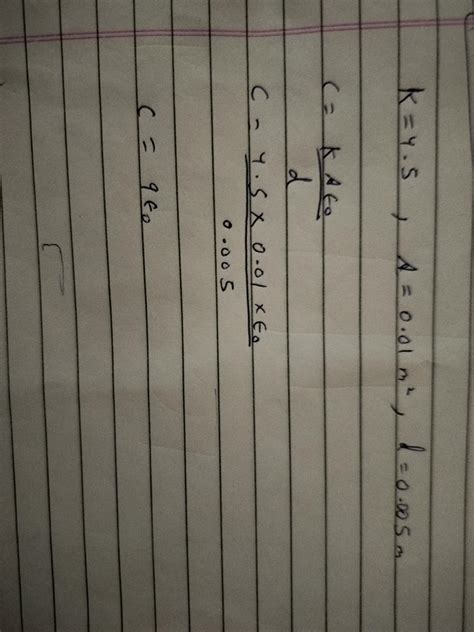 K = 4.5 , A = 0.01 m², d = 0.005 m
C = K A ϵ₀ / d
C = 4.5 × 0.01 × ϵ₀ / 0.005
C = 9ϵ₀